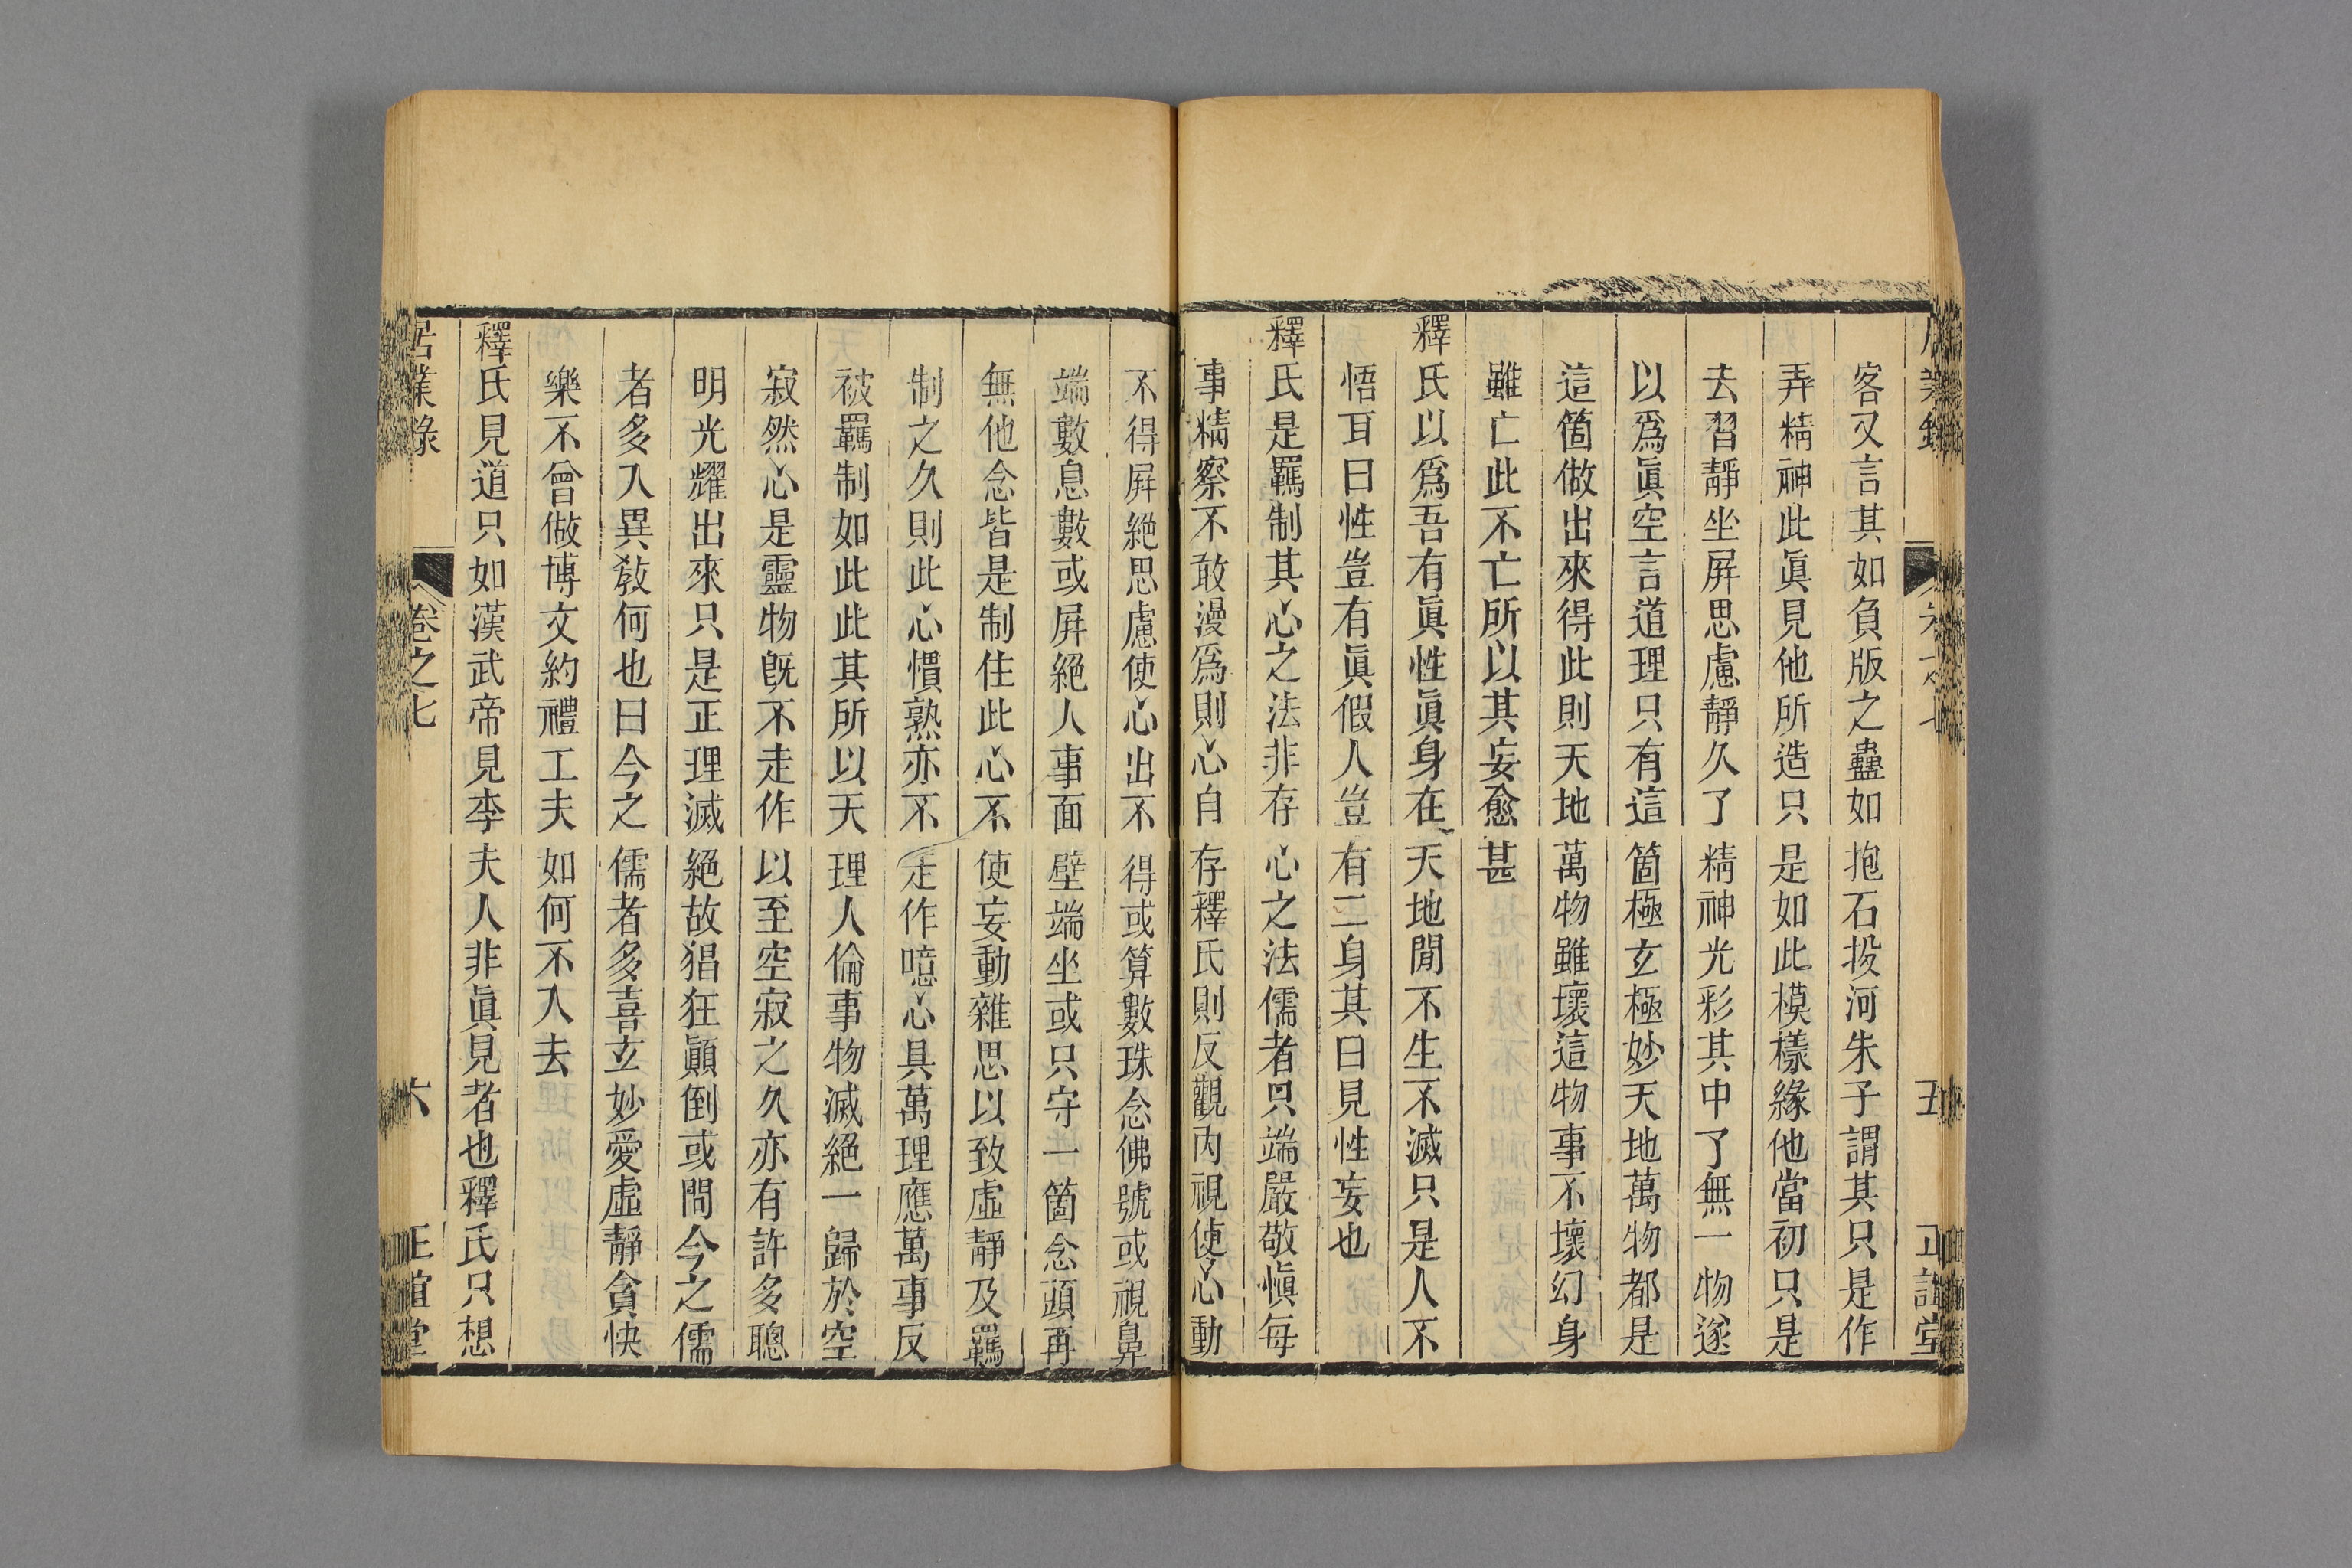 客又言其如負版之蟲如抱石投河朱子謂其只是作
弄精神此眞見他所造只是如此模樣緣他當初只是
去習靜坐屏思慮靜久了精神光彩其中了無一物遂
以爲眞空言道理只有這箇極玄極妙天地萬物都是
這箇做出來得此則天地萬物雖壞這物事不壞幻身
雖亡此不亡所以其妄愈甚
釋氏以爲吾有眞性眞身在天地閒不生不滅只是人不
悟耳曰性豈有眞假人豈有二身其曰見性妄也
釋氏是羈制其心之法非存心之法儒者只端嚴敬愼每
事精察不敢漫爲則心自存釋氏則反觀內視使心動
不得屏絕思慮使心出不得或算數珠念佛號或視鼻
端數息數或屏絕人事面壁端坐或只守一箇念頭再
無他念皆是制住此心不使妄動雜思以致虛靜及羈
制之久則此心慣熟亦不走作噫心具萬理應萬事反
被羈制如此此其所以天理人倫事物滅絕一歸於空
寂然心是靈物旣不走作以至空寂之久亦有許多聰
明光耀出來只是正理滅絕故猖狂顚倒或問今之儒
者多入異敎何也曰今之儒者多喜玄妙愛虛靜貪快
樂不曾做博文約禮工夫如何不入去
釋氏見道只如漢武帝見李夫人非眞見者也釋氏只想
居業錄 卷之七 六 正誼堂